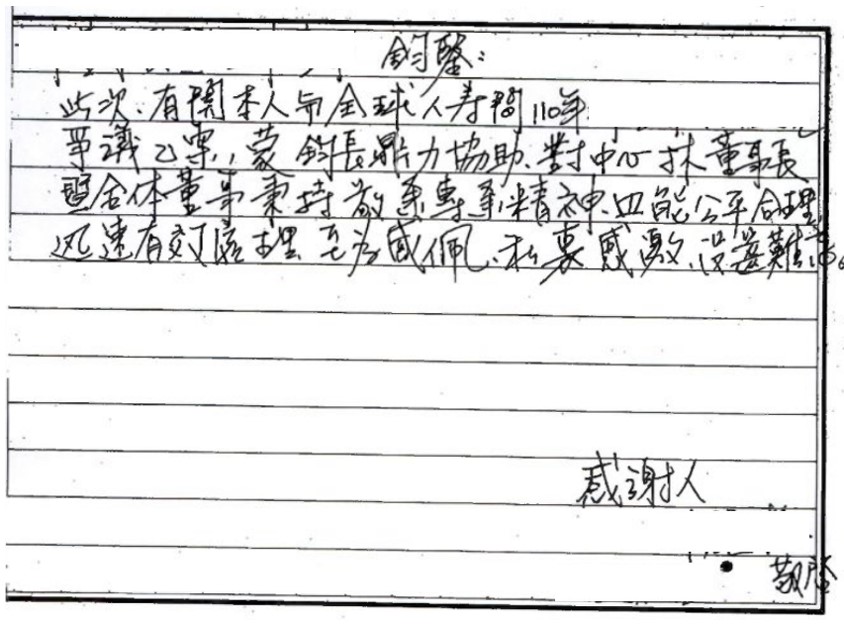 鈞鑒：
此次.有関本人与全球人寿間110年
爭議乙案，蒙鈞長鼎力協助.對中心林董事長
暨全体董事秉持敬業專業精神.且能公平合理
迅速有效處理至為感佩.私衷感激.沒齒難忘。
感謝人
敬啓